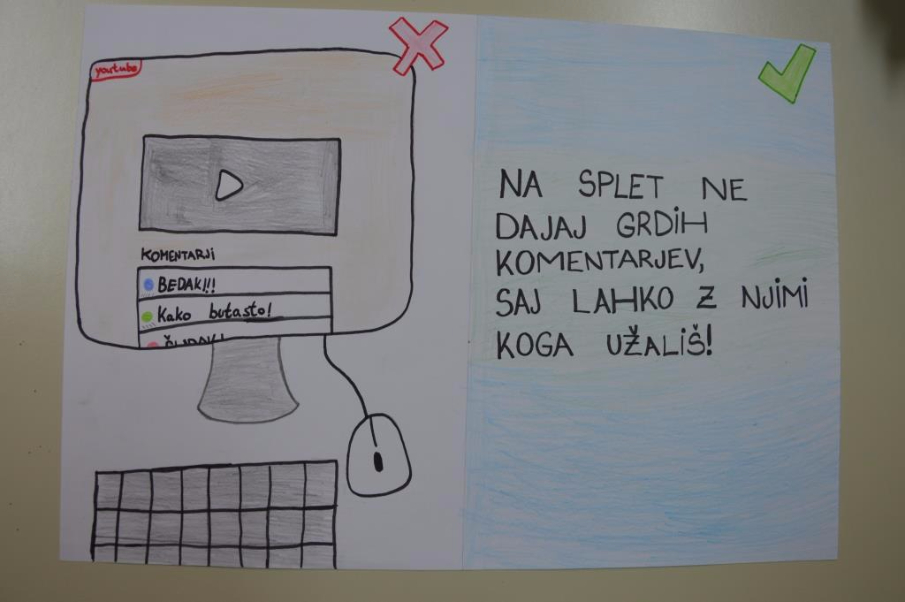 youtube
KOMENTARJI
BEDAK!!!
Kako butasto!
NA SPLET NE
DAJAJ GRDIH
KOMENTARJEV,
SAJ LAHKO Z NJIMI
KOGA UŽALIŠ!